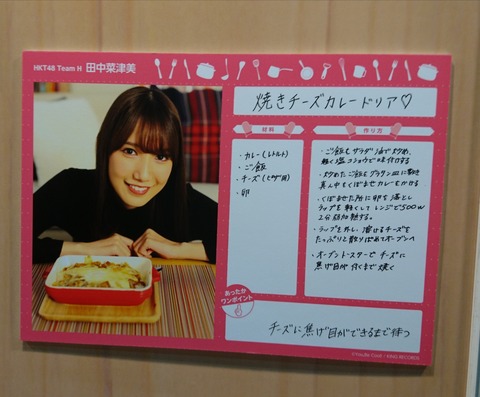 HKT48 Team H 田中菜津美
焼きチーズカレードリア♡
材料
・カレー(レトルト)
・ご飯
・チーズ(ピザ用)
・卵
作り方
・ご飯をサラダ油で炒め、
軽く塩コショウで味付する
・炒めたご飯をグラタン皿に敷き
真ん中をくぼませカレーをかける
・くぼませた所に卵を落とし
ラップを軽くしてレンジで500w
2分加熱する。
・ラップを外し、溶けるチーズを
たっぷりと散りばめてオーブンへ
・オーブントースターでチーズに
焦げ目が付くまで焼く
あったか
ワンポイント
チーズに焦げ目ができるまで待つ
©You, Be Cool! / KING RECORDS